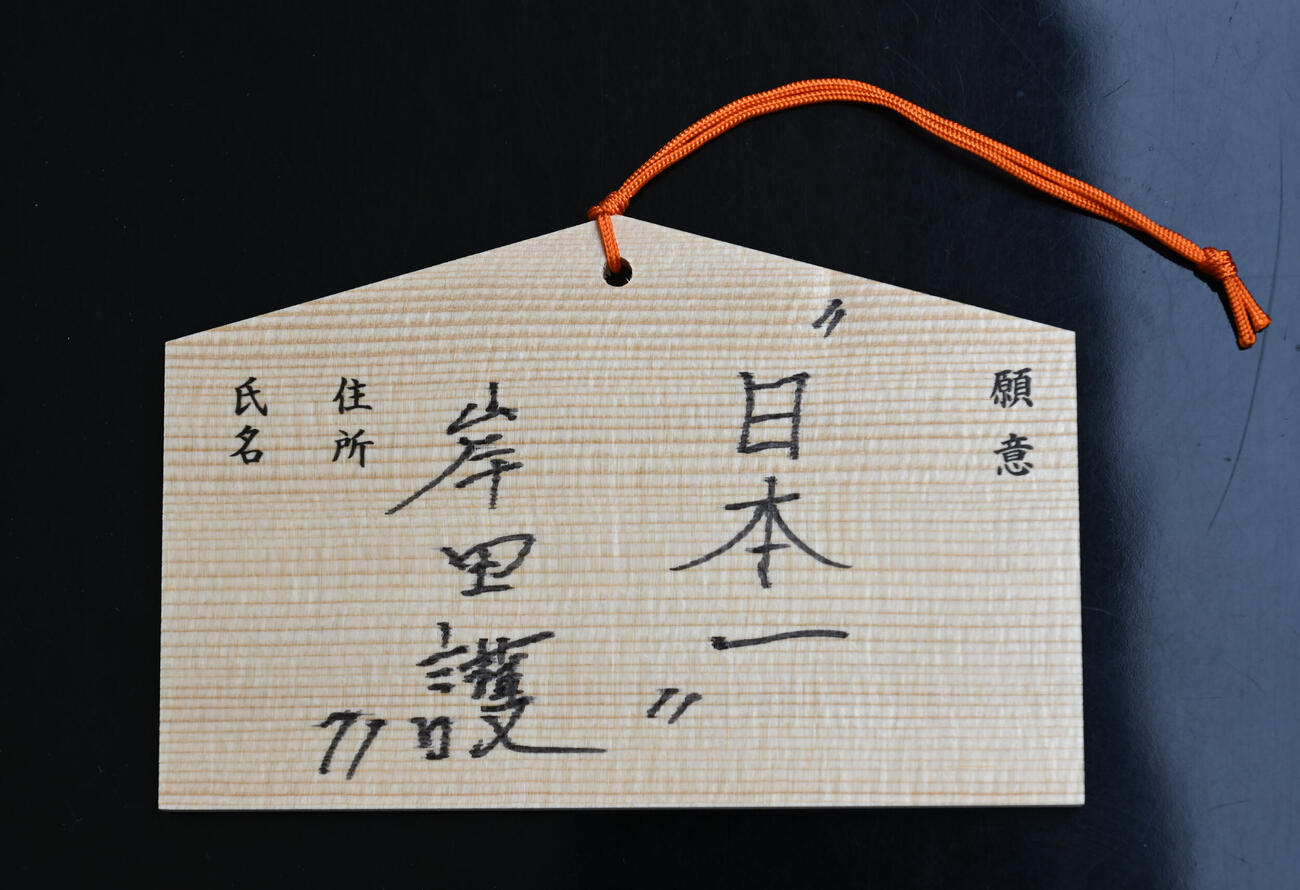 願意
〃日本一〃
岸田護
71
住所
氏名